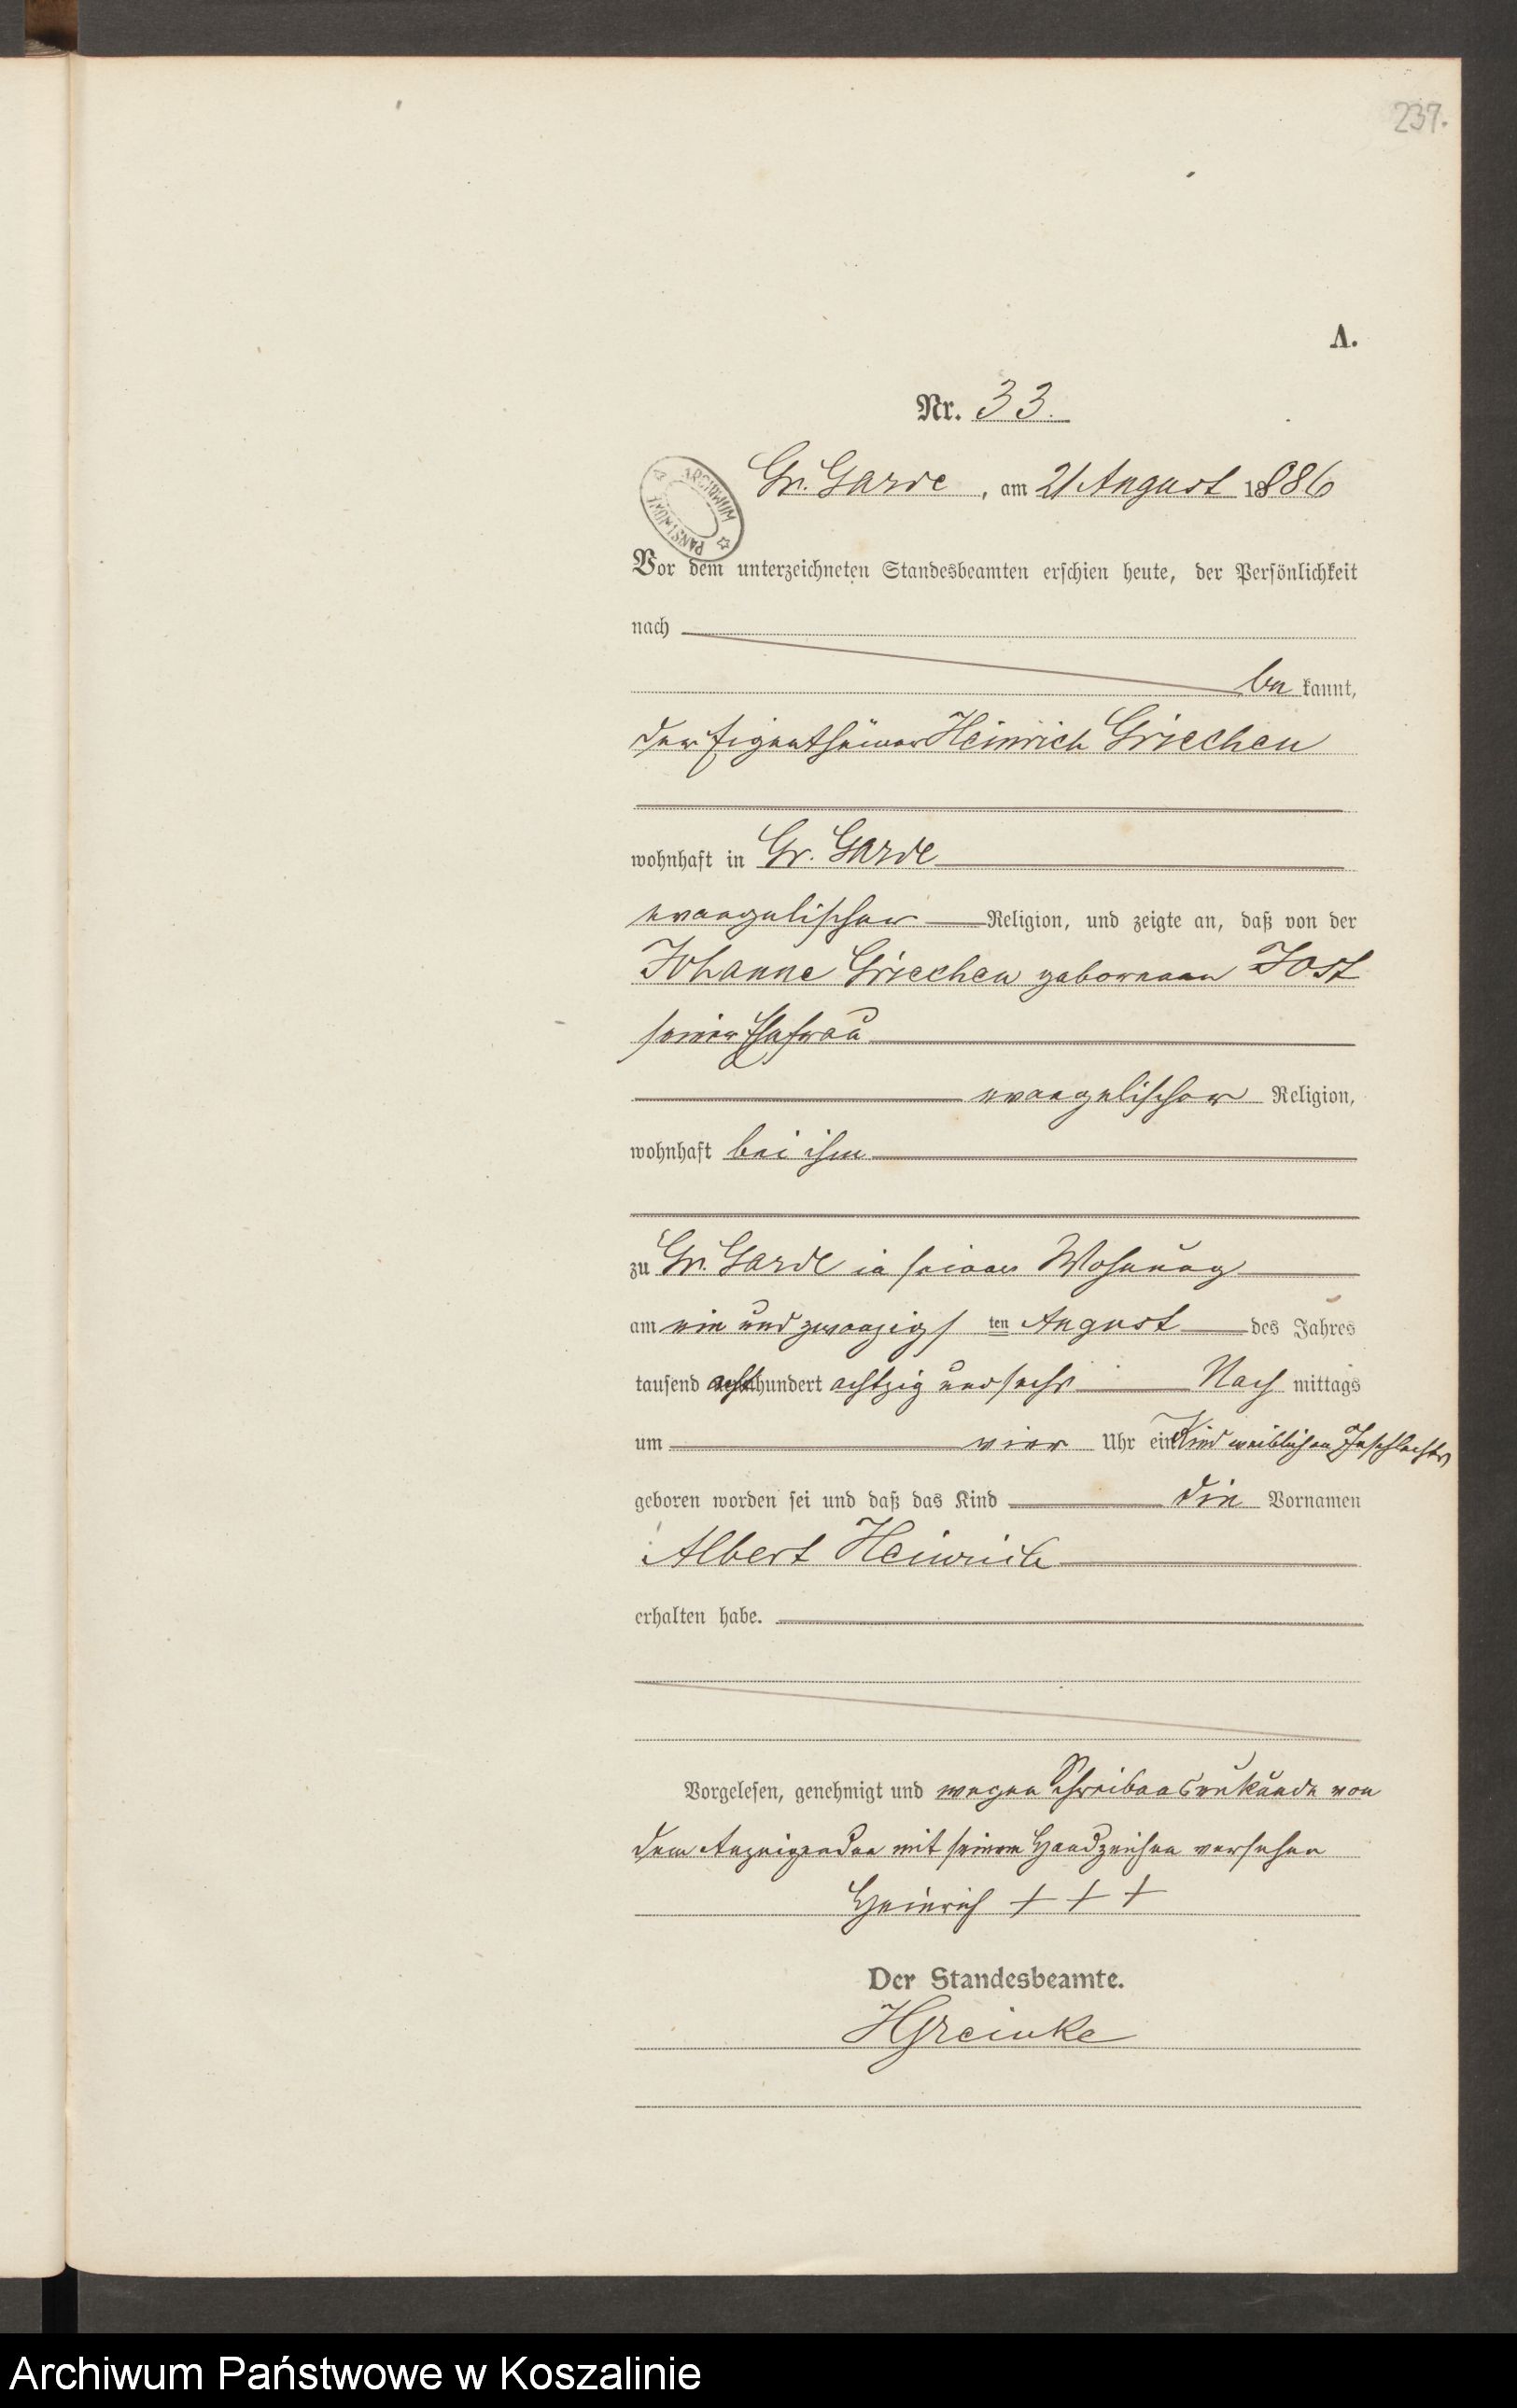 237.
A.
Nr. 33.
ARCHIWUM PAŃSTWOWE
Gr. Garde, am 21 August 1886
Vor dem unterzeichneten Standesbeamten erschien heute, der Persönlichkeit
nach
be kannt,
der Eigenthümer Heinrich Griechen
wohnhaft in Gr. Garde
evangelischer Religion, und zeigte an, daß von der
Johanne Griechen geborenen Jost
seiner Ehefrau
evangelischer Religion,
wohnhaft bei ihm
zu Gr. Garde in seiner Wohnung
am ein und zwanzigs ten August des Jahres
tausend acht hundert achtzig und sechs Nach mittags
um vier Uhr ein Kind weiblichen Geschlechts
geboren worden sei und daß das Kind die Vornamen
Albert Heinrich
erhalten habe.
Vorgelesen, genehmigt und wegen Schreibensunkunde von
dem Anzeigenden mit seinem Handzeichen versehen
Heinrich + + +
Der Standesbeamte.
HGreinke
Archiwum Państwowe w Koszalinie